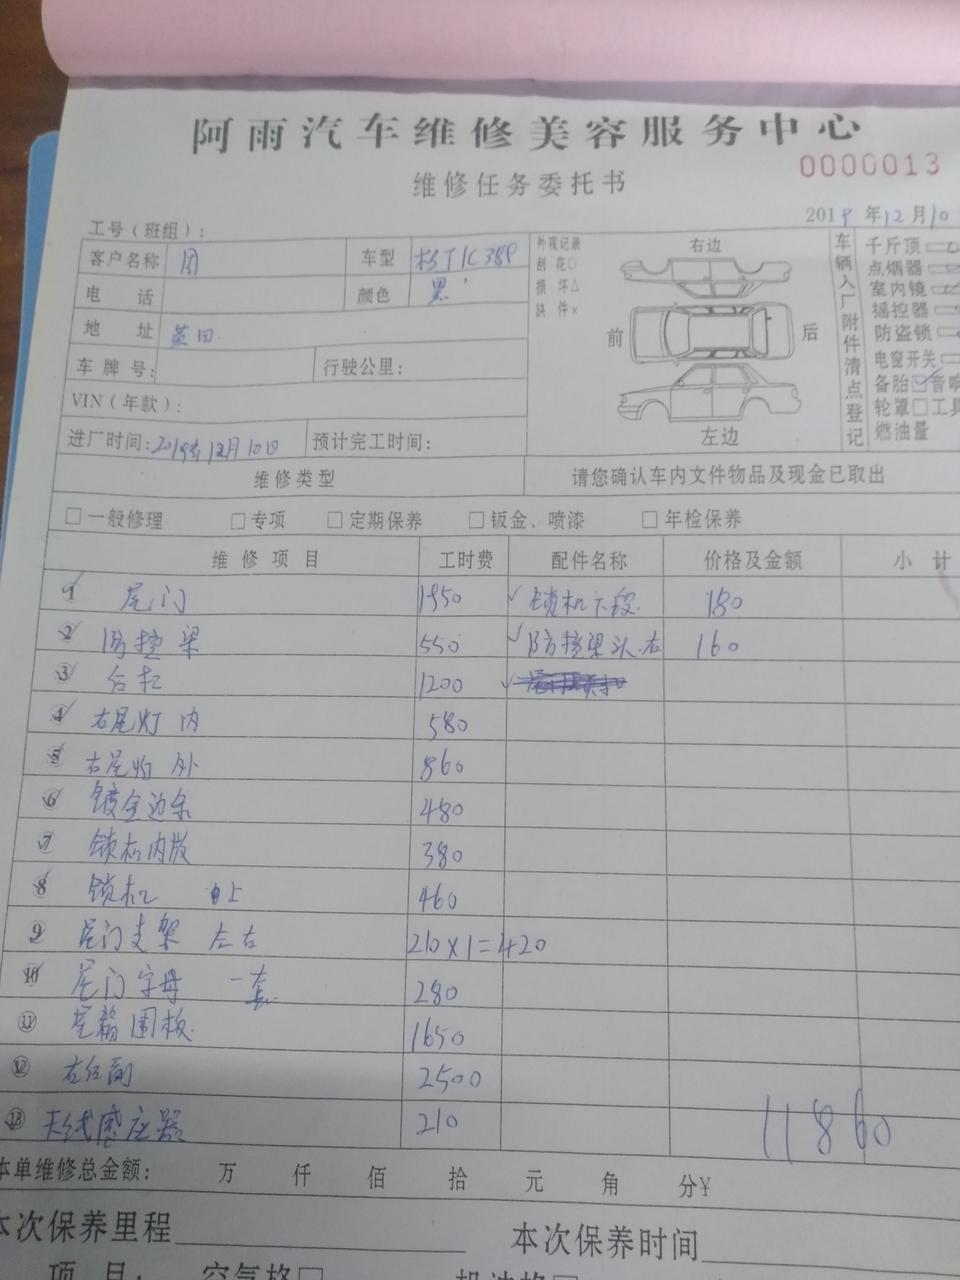 阿雨汽车维修美容服务中心
0000013
维修任务委托书
2019年12月10
工号（班组）：
客户名称 车型
电话 颜色 黑
地址
车牌号： 行驶公里：
VIN（年款）：
进厂时间：2019年12月10日 预计完工时间：
外观记录
刮花○
损坏△
缺件×
右边
前 后
左边
车辆入厂附件清点登记
千斤顶
点烟器
室内镜
摇控器
防盗锁
电窗开关
备胎 音响
轮罩 工具
燃油量
维修类型 请您确认车内文件物品及现金已取出
□一般修理 □专项 □定期保养 □钣金、喷漆 □年检保养
维修项目 工时费 配件名称 价格及金额 小计
① 尾门 1950 ✓锁机下段 180
② 防撞梁 550 ✓防撞梁头.右 160
③ 后杠 1200 ✓
④ 右尾灯 内 580
⑤ 右尾灯 外 860
⑥ 镀金边条 480
⑦ 锁机内版 380
⑧ 锁机 上 460
⑨ 尾门支架 左右 210×1=420
⑩ 尾门字母 一套 280
⑪ 尾箱围板 1650
⑫ 右后 2500
⑬ 天线感应器 210
11860
本单维修总金额： 万 仟 佰 拾 元 角 分¥
本次保养里程 本次保养时间
项目： 空气格□ 机油格□